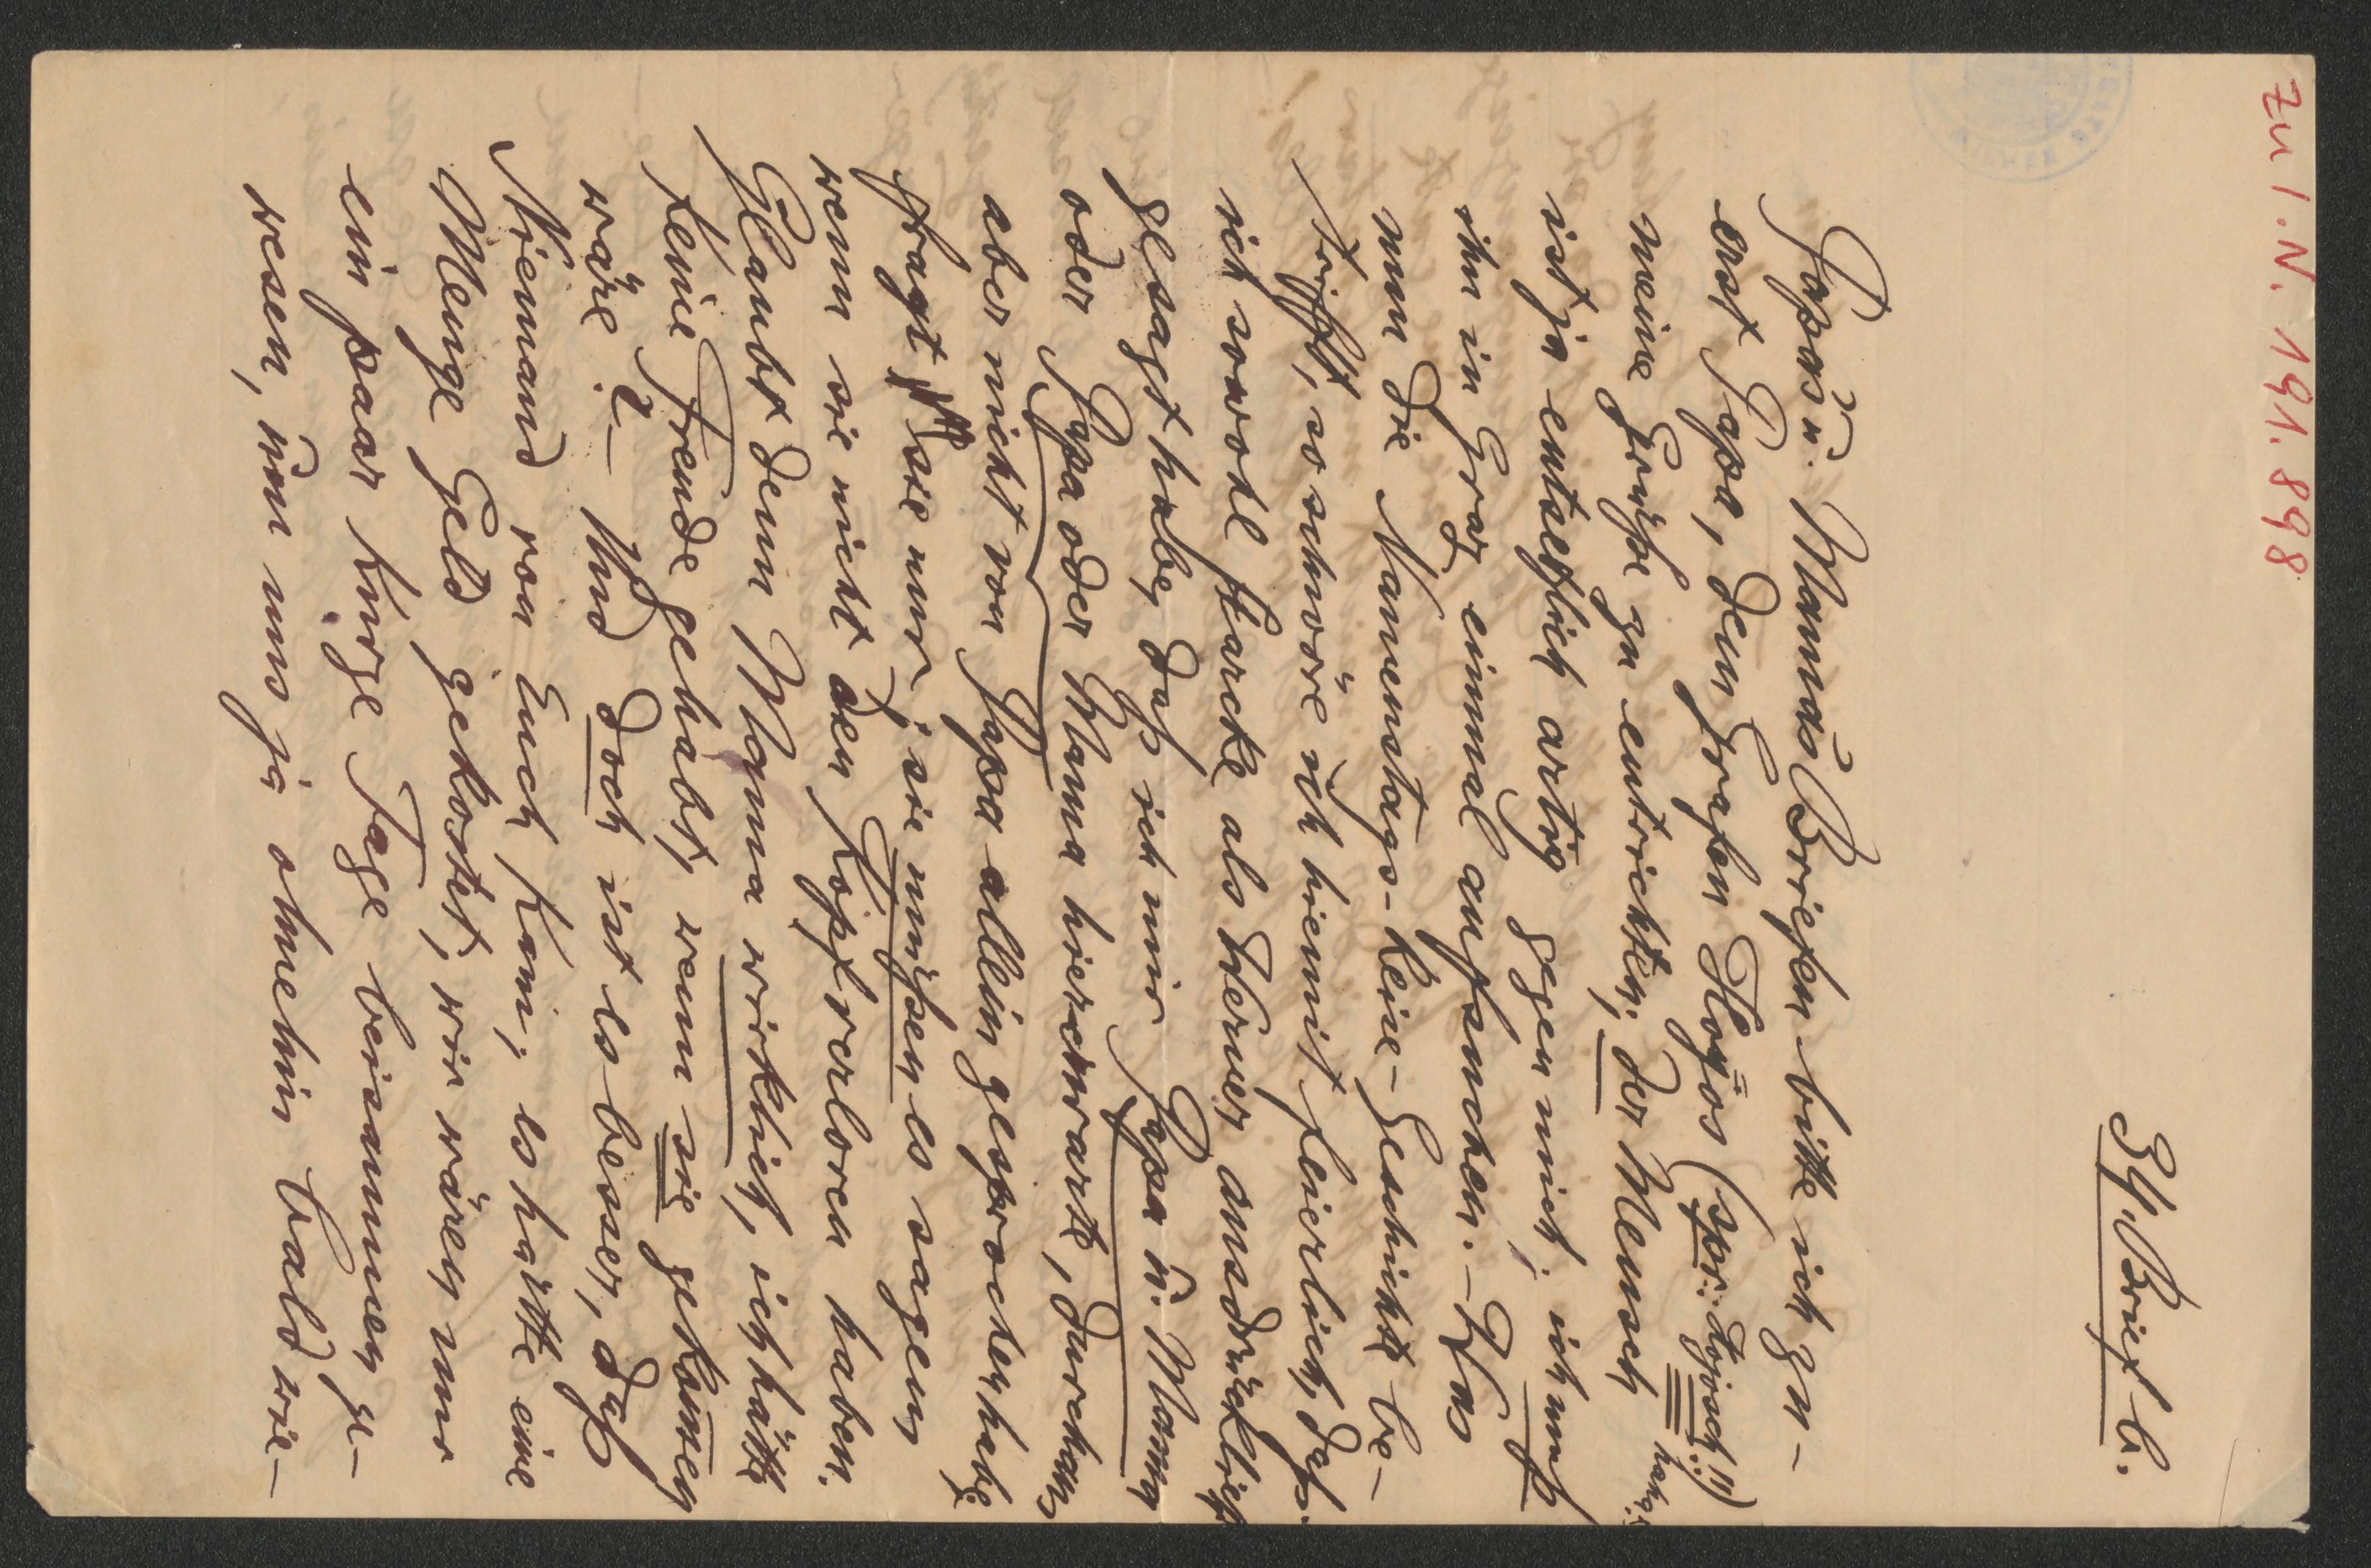 zu I.N. 191.898
34. Brief b.
Papas u. Mamas Briefen bitte ich zu-
erst Papa, dem Grafen Hoyos (spr: Ojosch!!!)
meine Grüße zu entrichten; der Mensch haha!
ist ja entsetzlich artig gegen mich; ich muß
ihn in Graz einmal aufsuchen. - Was
nun die Namenstags-Reise-Geschichte be-
trifft, so schwöre ich hiermit feierlich, daß
ich sowohl Harcke als Werner ausdrücklich
gesagt habe, daß ich mir Papa u. Mama
oder Papa oder Mama hierorts erwarte, durchaus
aber nicht von Papa allein gesprochen habe;
fragt sie nur; sie müssen es sagen
wenn sie nicht den Kopf verloren haben.
Glaubt denn Mama wirklich, ich hätte
keine Freude gehabt, wenn sie gekomen
wäre? - Und doch ist es besser, daß
Niemand von Euch kam; es hätte eine
Menge Geld gekostet, wir wären nur
ein paar kurze Tage beisammen ge-
wesen, um uns ja ohnehin bald wie-